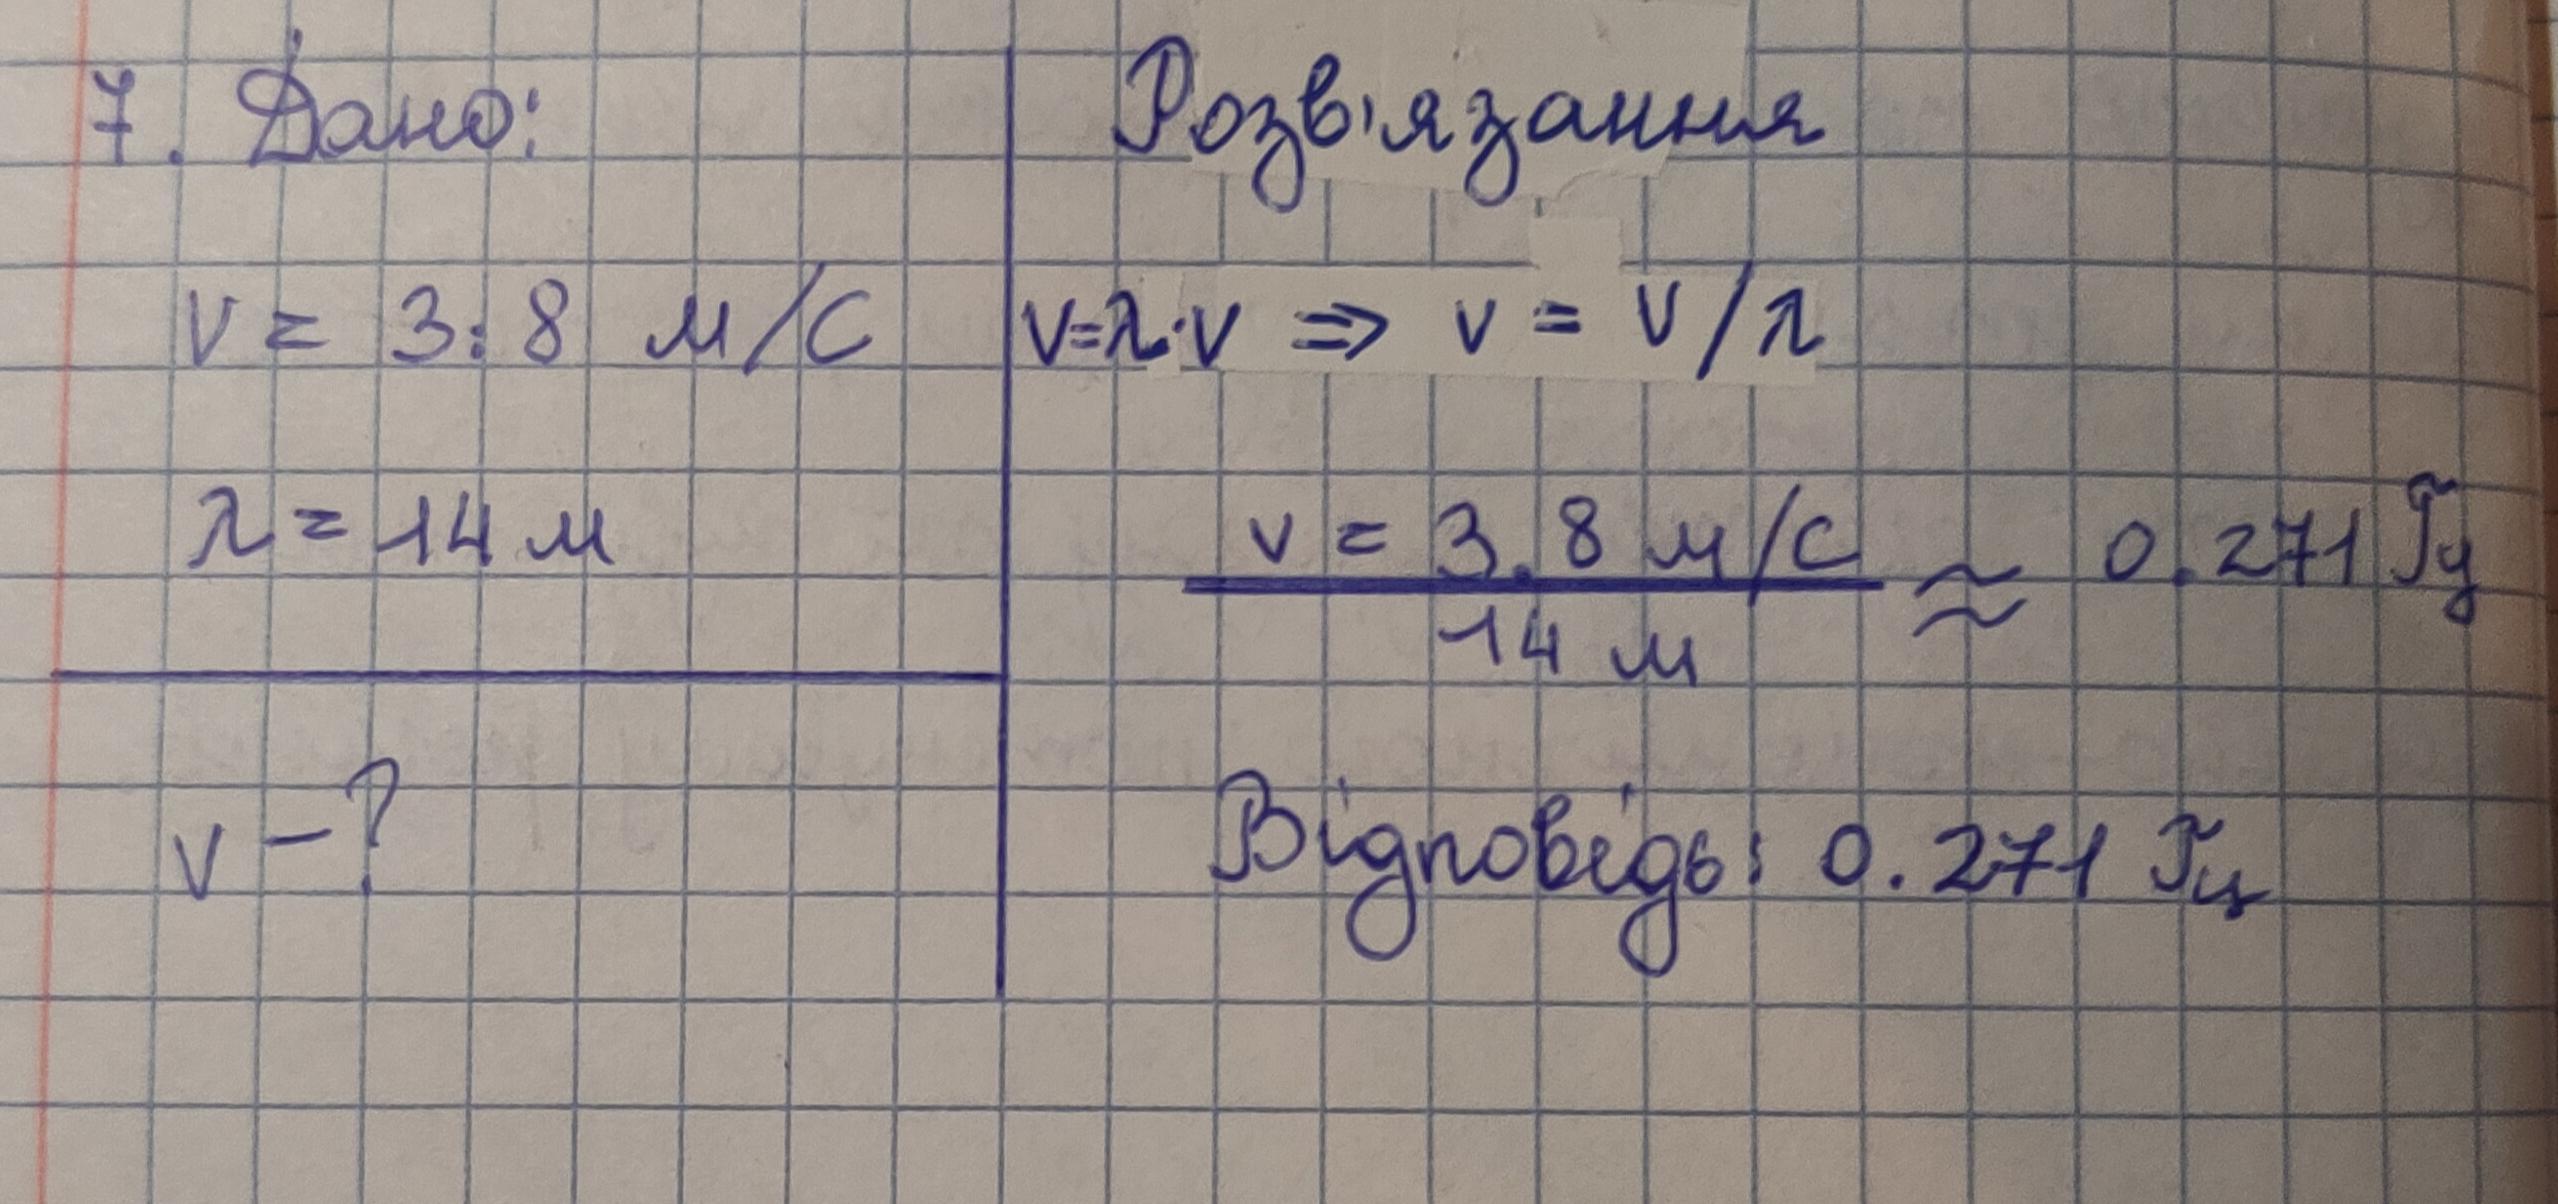 7. Дано:
v = 3:8 м/с
λ = 14 м
v - ?
Розв'язання
v=λ·v ⇒ v = v/λ
v = 3.8 м/с ≈ 0.271 Гц
14 м
Відповідь: 0.271 Гц